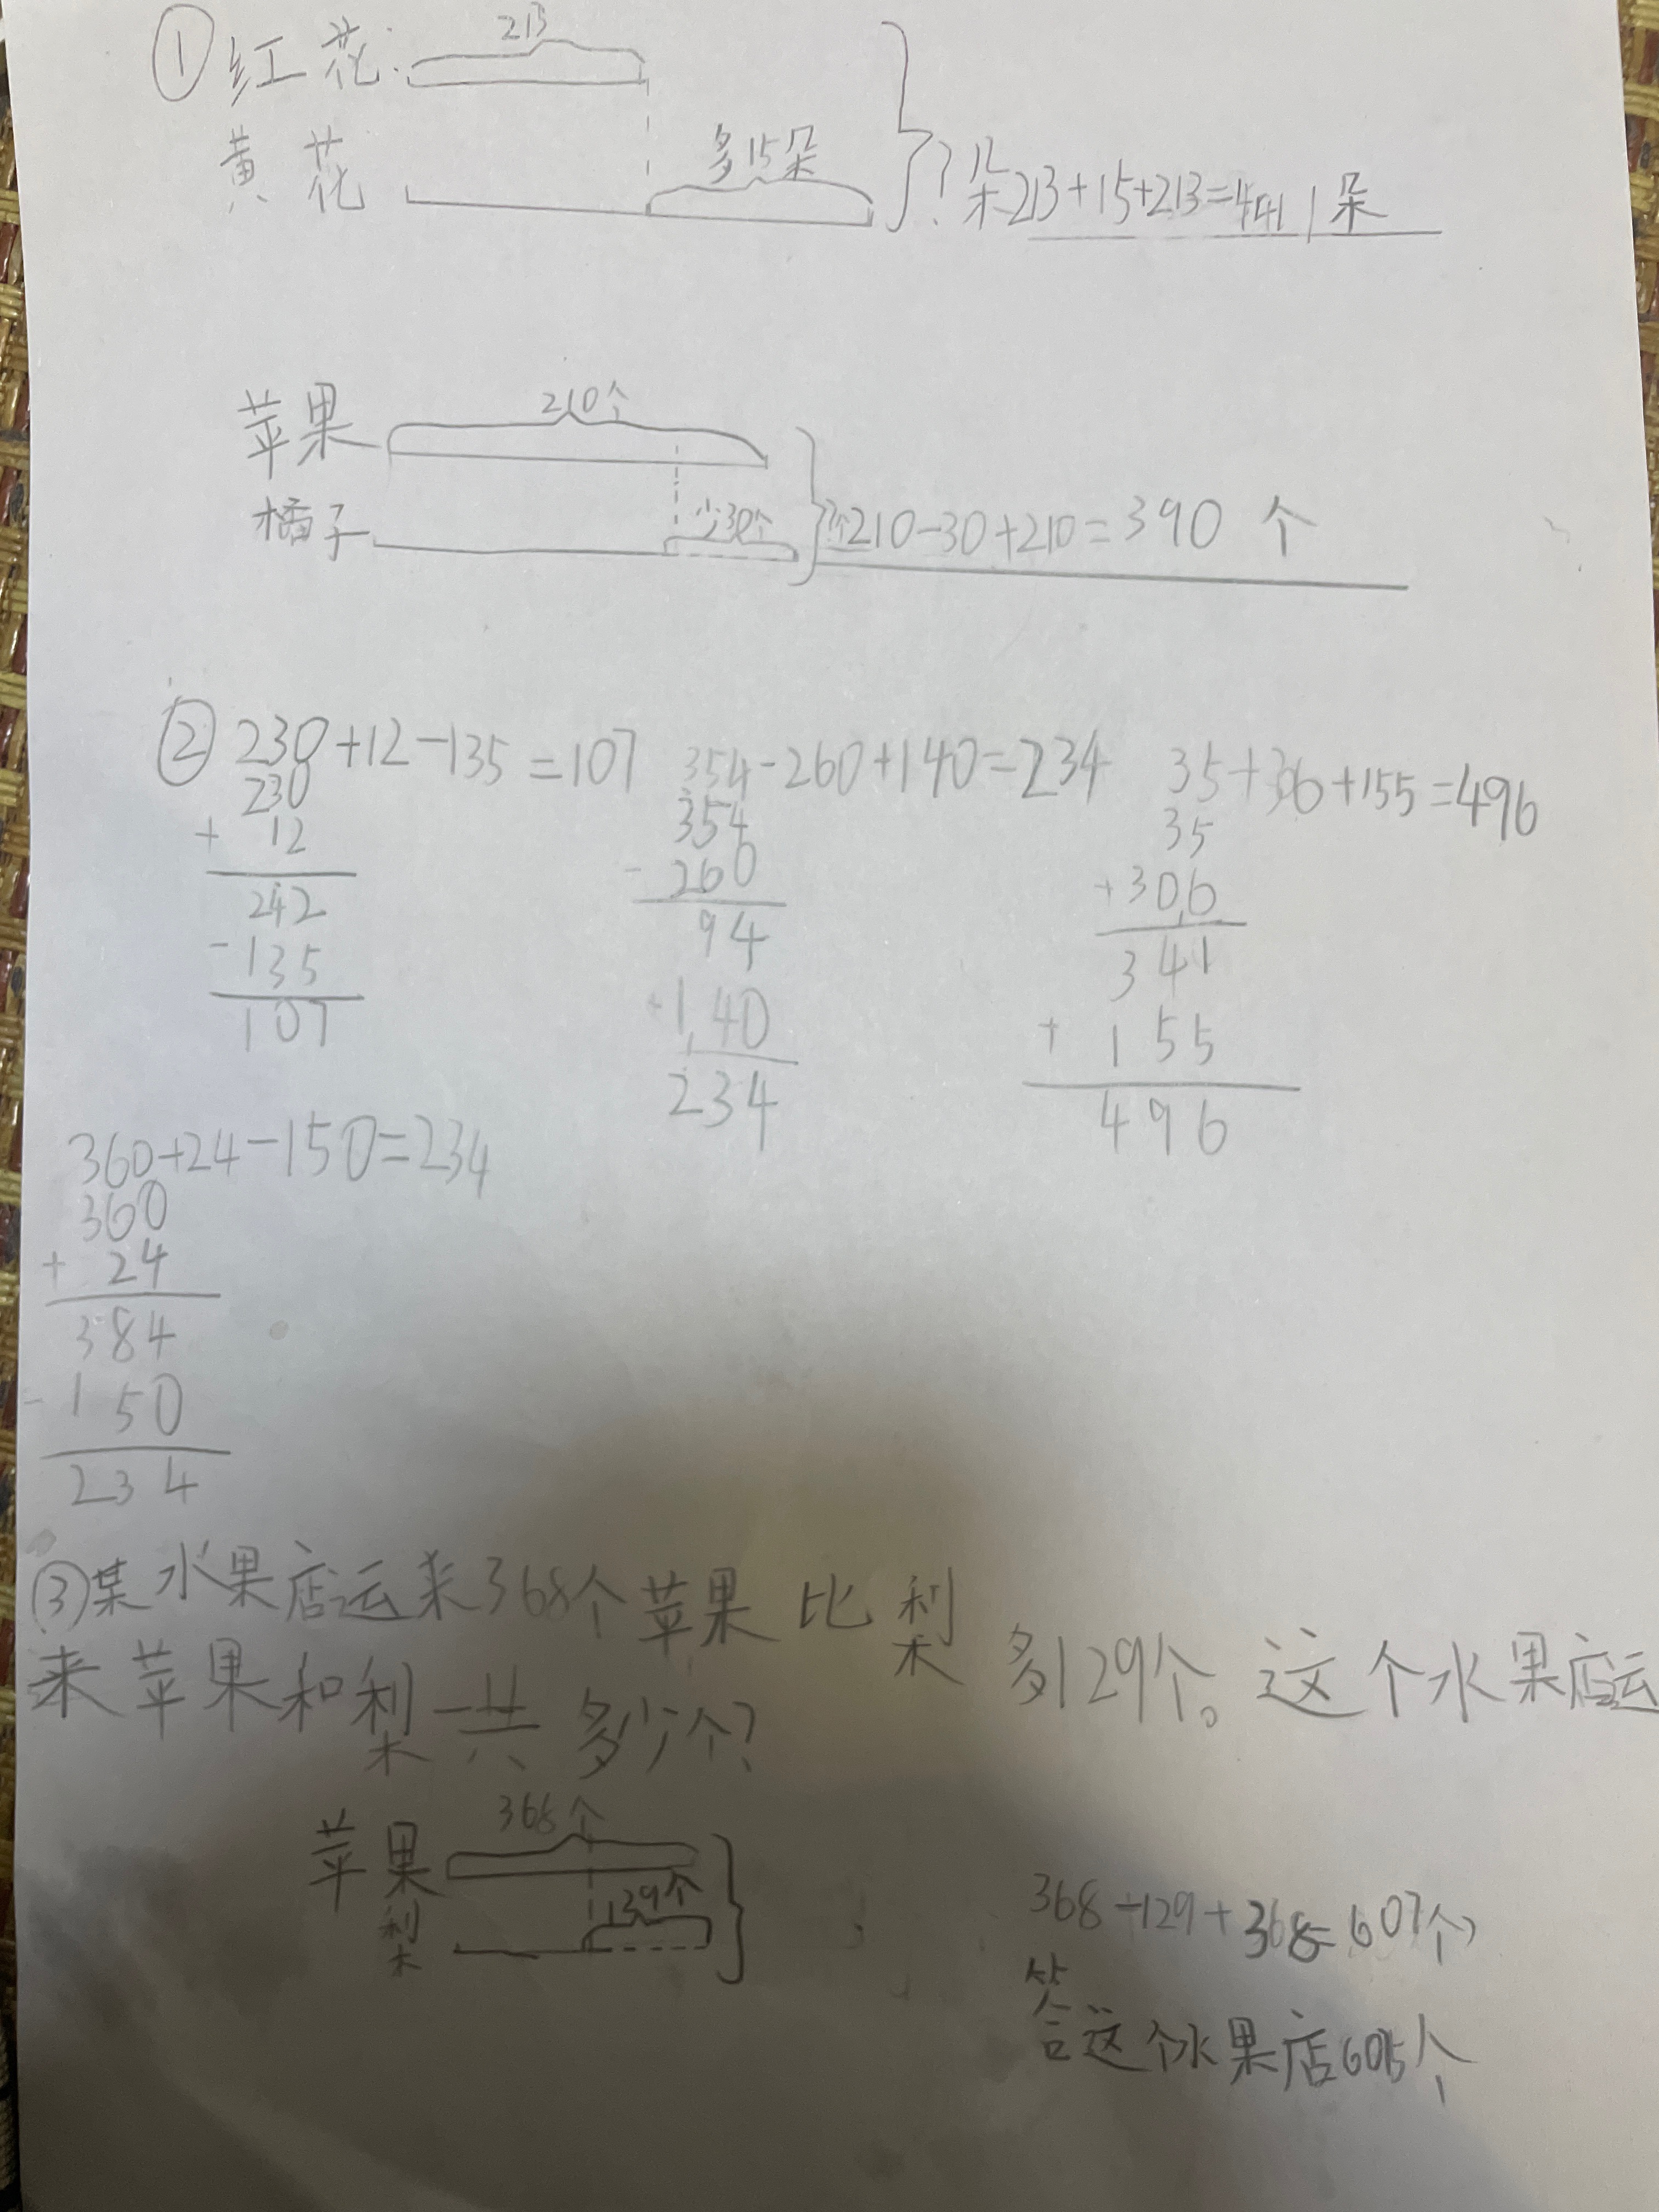 ① 红花: 213
黄花 多15朵 ?朵 213+15+213=441朵
苹果 210个
橘子 少30个 ?个 210-30+210=390 个
② 230+12-135=107 354-260+140=234 35+306+155=496
230
+ 12
242
- 135
107
354
- 260
94
+ 140
234
35
+ 306
341
+ 155
496
360+24-150=234
360
+ 24
384
- 150
234
③某水果店运来368个苹果比梨多129个。这个水果店运
来苹果和梨一共多少个?
苹果 368个
梨
368-129+368=607个
答这个水果店